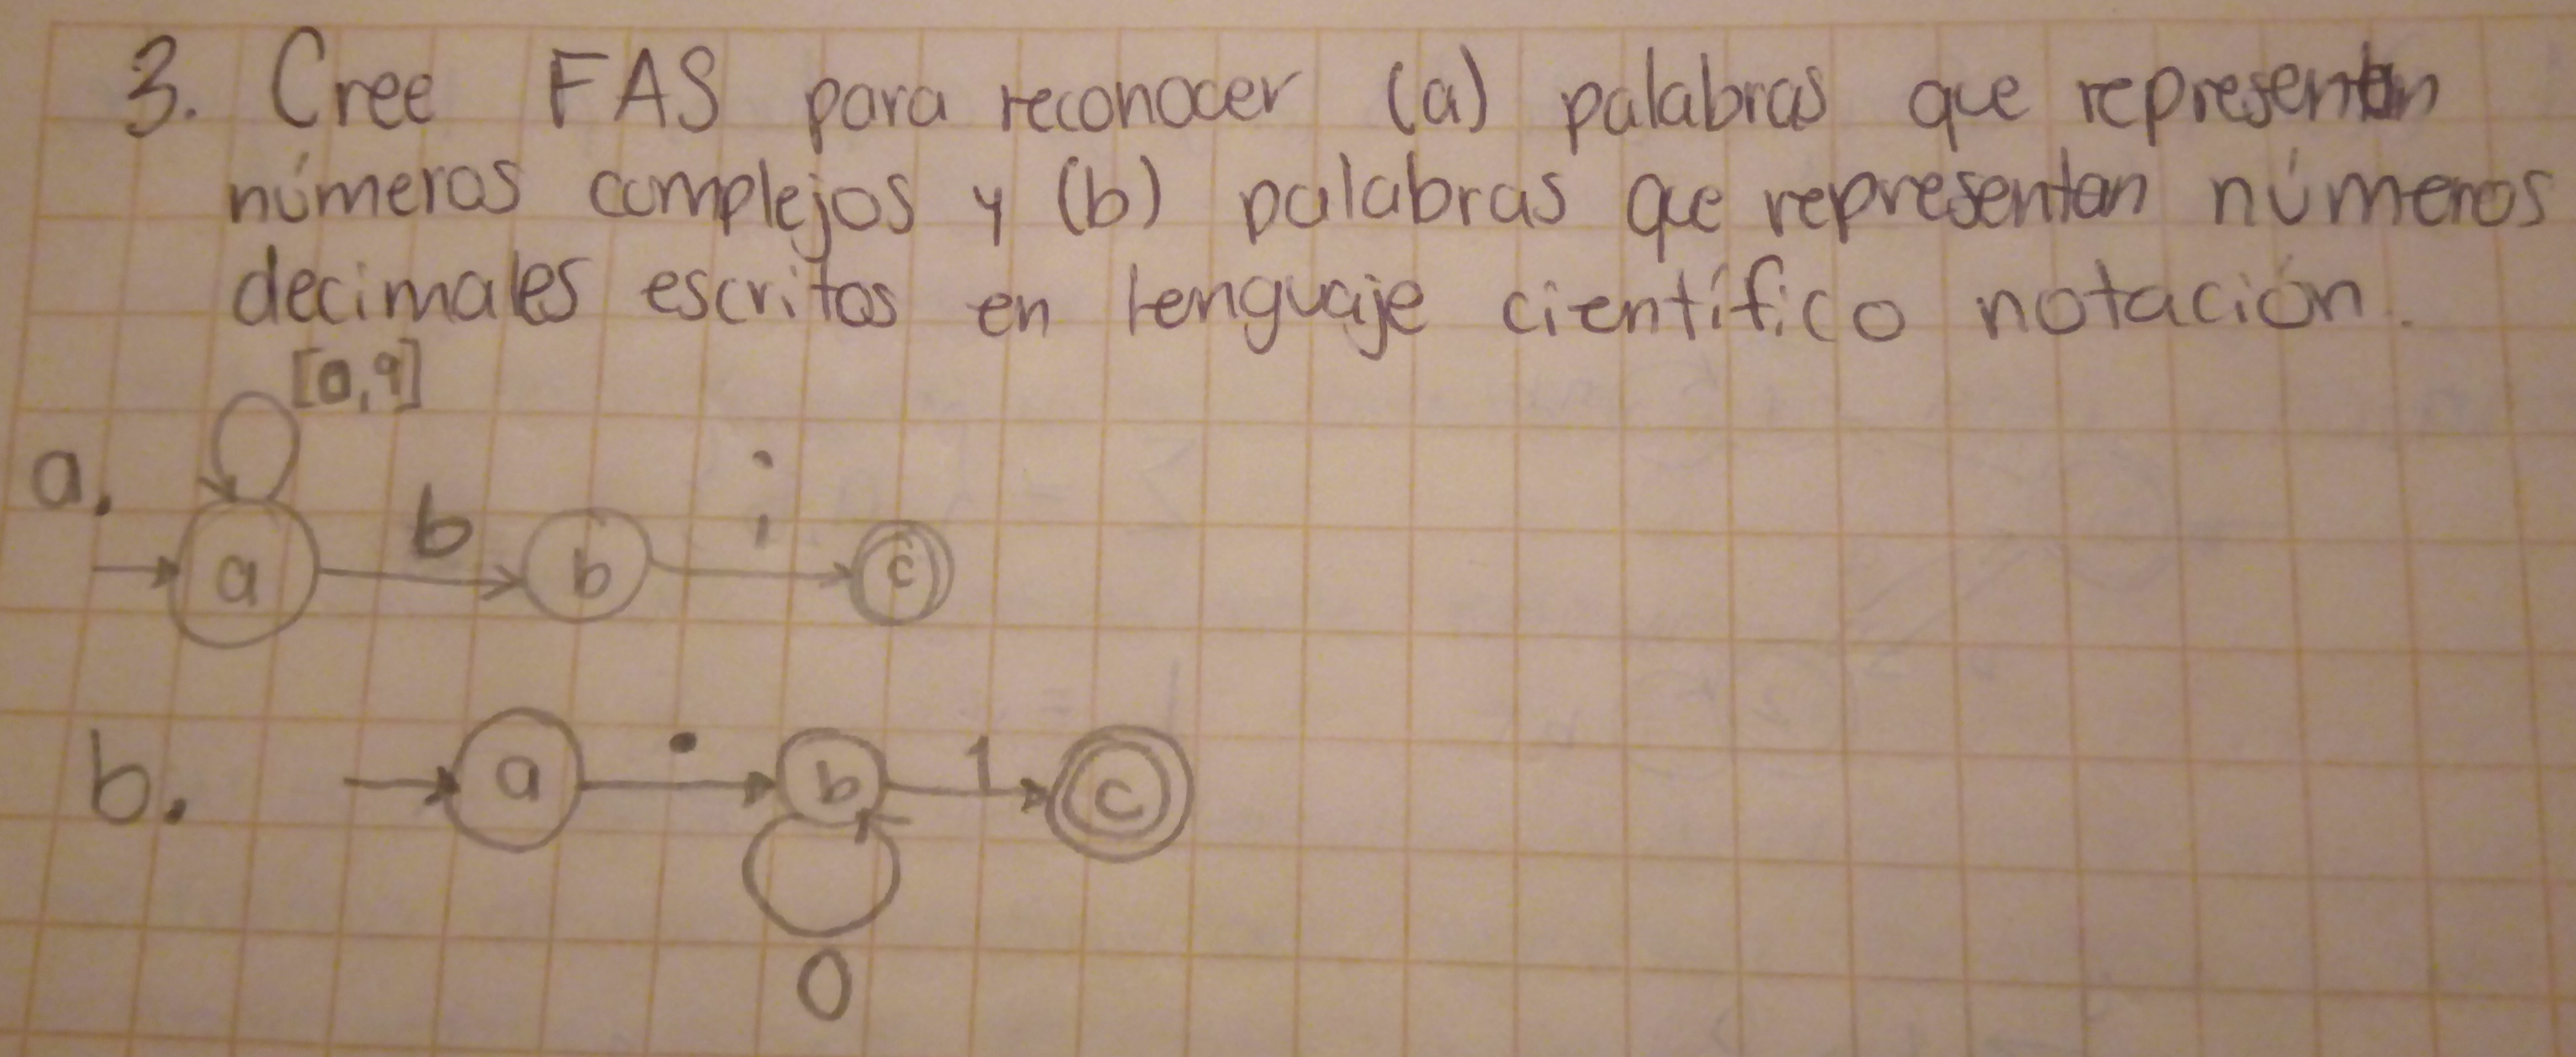 3. Cree FAS para reconocer (a) palabras que representan
números complejos y (b) palabras que representan números
decimales escritos en lenguaje científico notación.
[0,9]
a.
b
i
a
b
c
b.
.
1
a
b
c
0